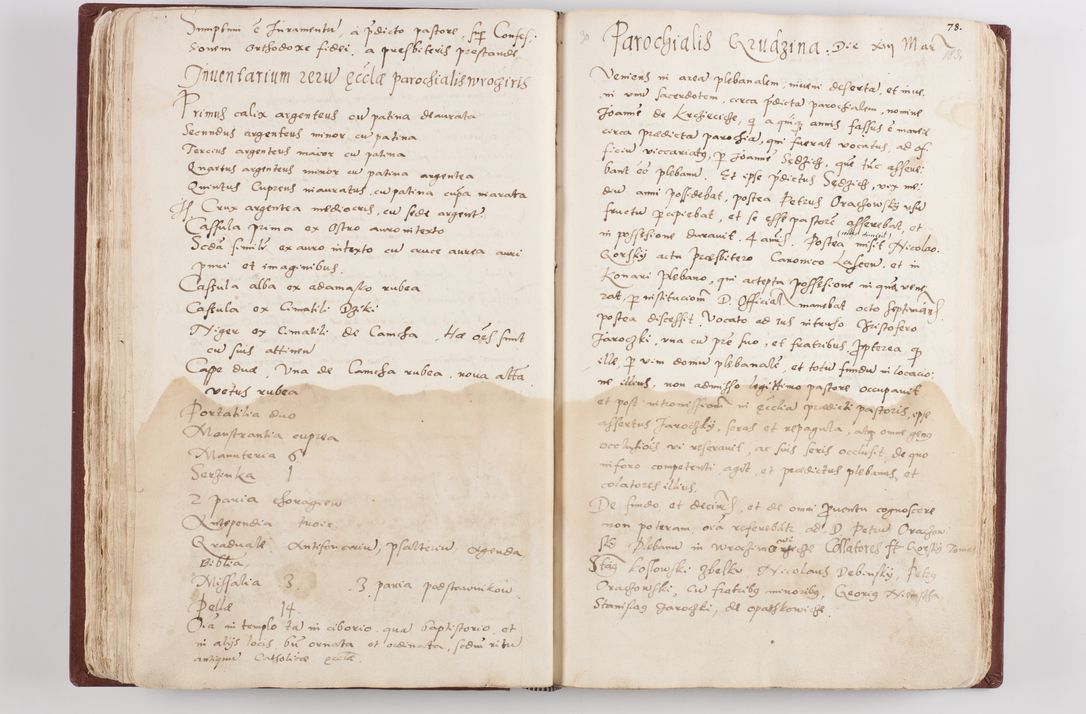 Sumptum ẽ Iuramentũ, a p̃dicto pastore, sup Confes:
sionem orthodoxe fidei, a presbiteris prestande,
Inventarium rerũ ecclæ parochialis wrozins
Primus calix argenteus cu patina deaurata
Secundus argenteus minor cu patina
Tercius argenteus maior cu patina
Quartus argenteus minor cu patina argentea
Quintus Cupreus inauratus, cu patina cupa inarata
It Crux argentea mediocris, cu sede argent
Cassula prima ex Ostro auro intexto
Scda similis ex auro intexto cu cruce aurea auri
puri et imaginibus.
Cassula alba ex adamasto rubea
Cassula ex Cimatili Dziki
Niger ex Cimatili de Camcha, Hæ oẽs sunt
cu suis attinen
Cappe duæ, Una de Camcha rubea, nova alta
vetus rubea
Portatilia duo
Monstrantia cuprea
Manuteria 6
Serzinka 1
2 paria choragiew
Antependia troie
Graduale Antifonariu, psalteriu, agenda
Biblia,
Missalia 3. 3 paria podstawnikow
Pellæ 14
Oia in templo ta in ciborio, qua baptistorio, et
in alijs locis, bn ornata et ordinata, scdm ritu
antique Catholicæ ecclæ
78.
Parochialis Gruázina. Die XIII Mar
Veniens in area plebanalem, inveni deserta, et inve
ni unu sacerdotem, circa pdicta parochialem, nomine
Joanne de, q a quinq annis fassus ẽ manere
circa prædicta parochia, qui fuerat vocatus, ad of
ficiu viccariatq, p Joanne Sedzich, que tuc asseru
bant eo plebanu. Et ipse pdictus Sedzich, vix me
diu anni possidebat, postea Petrus Orachowsky usu
fructu pcipiebat, et se esse pastore asserebat, et
in possesione duravit 4 annis. Postea misit Nicolao
Gorsky actu Præsbitero Canonico Lascen. et in
Konari Plebano, qui accepta possesione in qua vene
rat, p institucione D. Official manebat octo septimanis
postea discessit. Vocato ad ius intruso Kristofero
Jarochi, una cu pre suo, et fratribus ppterea q
ille, p vim domu plebanale, et totu fundu in locacio
ne illius, non admisso legittimo pastore occupavit
et post intromissione in ecclia prædicti pastoris, ipse
assertus Jarochky, seras et repagula, atq omne genq
occlusiois vi reseravit, ac suis seris occlusit, de quo
in foro competenti agit, et prædictus plebanus, et
colatores illius.
De fundo, et decimis, et de omni pventu cognoscere
non poteram, oia referebat ad D. Petru Orachow
sky Plebanu in Collatores st Gorsky Toma
Stáq Koslowski Zbelku Nicolaus Debinsky, Petrq
Orachowski, Cu fratribq minoribq, Georiq Niemscha
Stanislaq Jarochki, de opathkowiche